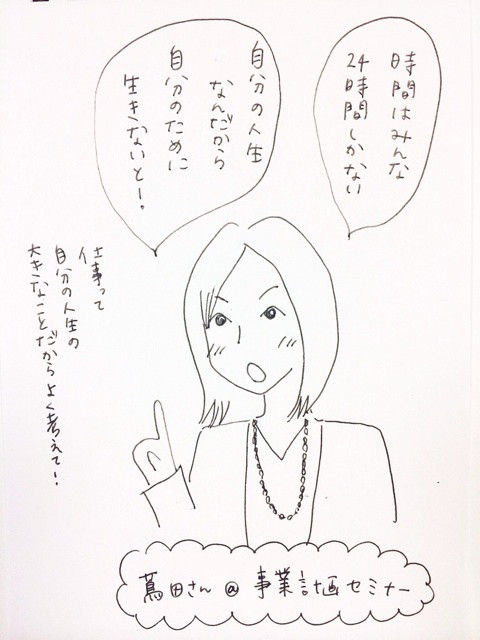 時間はみんな
24時間しかない
自分の人生
なんだから
自分のために
生きないと!
仕事って
自分の人生の
大きなことだから よく考えて!
蔦田さん@事業計画セミナー